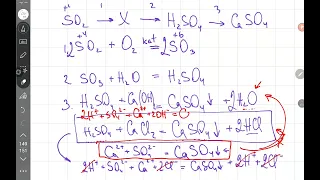 1 2 3
SO₂ → X → H₂SO₄ → CaSO₄
+4 +6
1. 2SO₂ + O₂ kat = 2SO₃
2. SO₃ + H₂O = H₂SO₄
3. H₂SO₄ + Ca(OH)₂ = CaSO₄↓ + 2H₂O
2H⁺ + SO₄²⁻ + Ca²⁺ + 2OH⁻ =
H₂SO₄ + CaCl₂ = CaSO₄↓ + 2HCl
Ca²⁺ + SO₄²⁻ = CaSO₄↓
2H⁺ + SO₄²⁻ + Ca²⁺ + 2Cl⁻ = CaSO₄↓ + 2H⁺ + 2Cl⁻
149
151